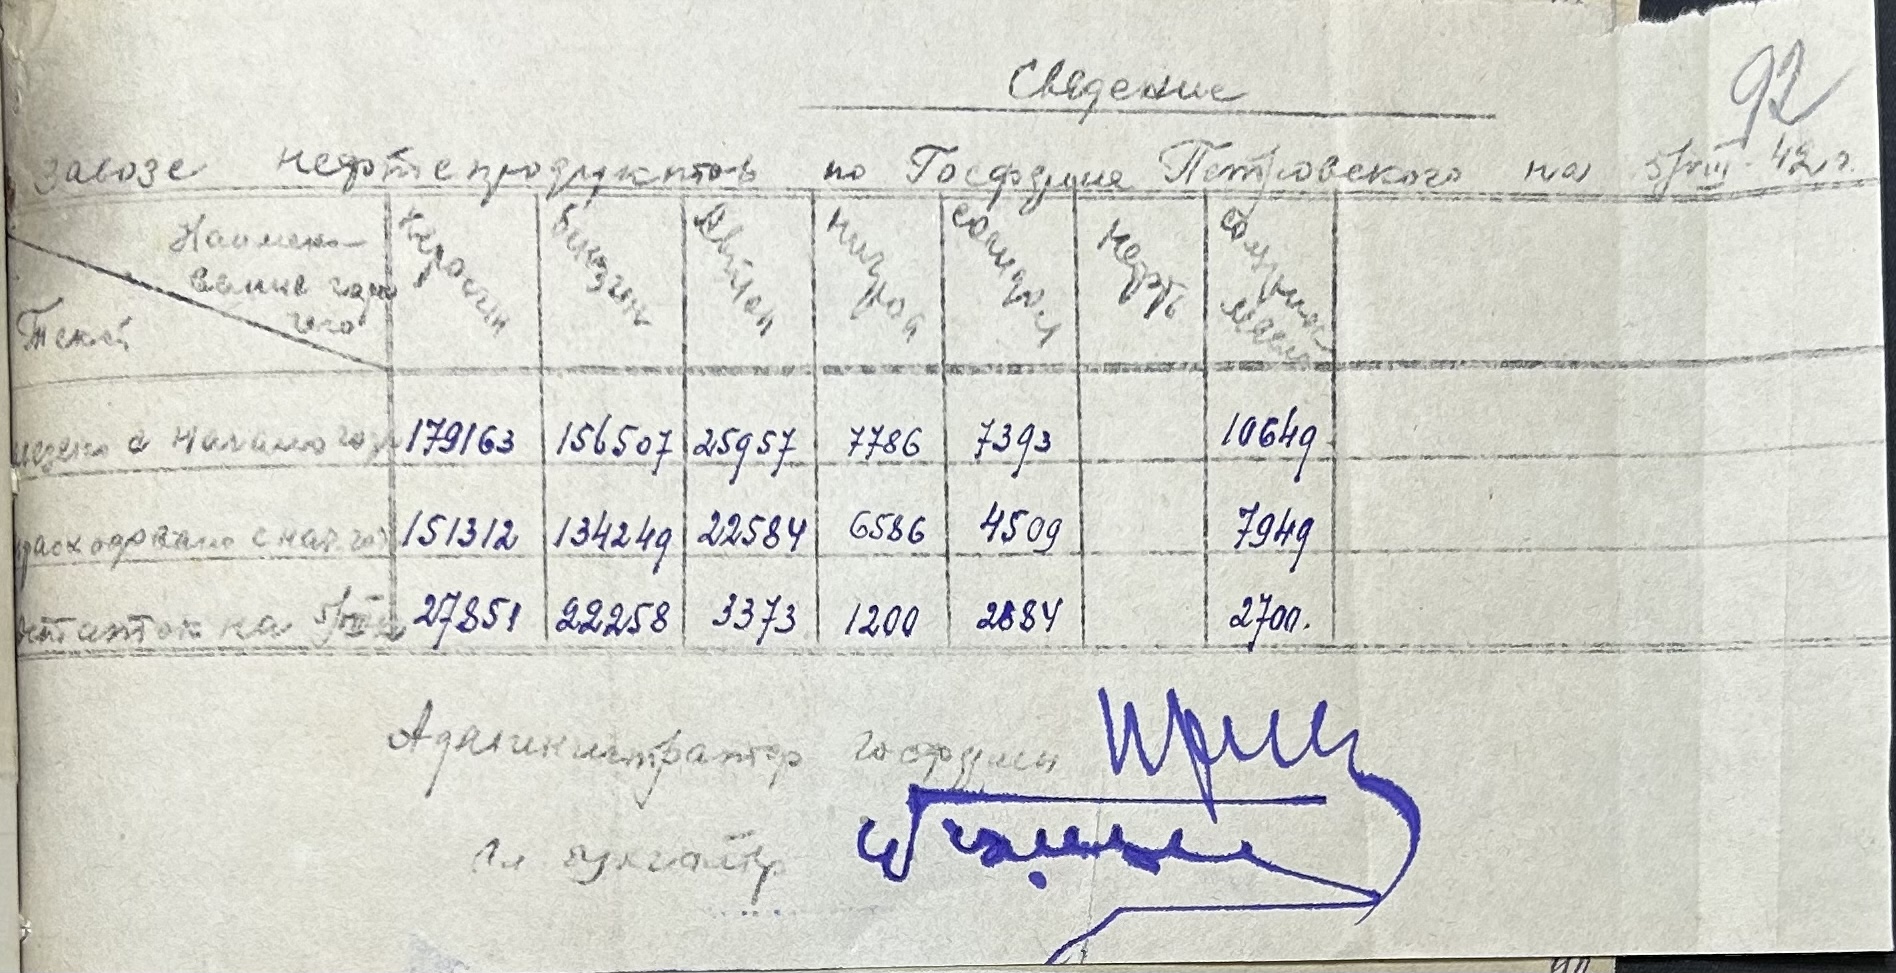 Сведение
92
завозе нефтепродуктов по Госфирме Петровского на 5/VIII-42 г.
Наимен-
вание горю
чего
Керосин Бензин Автол Нигрол Солидол Нефть Машинное масло
завезено с начало года 179163 156507 25957 7786 7393 10649
расходовано с нач. го 151312 134249 22584 6586 4509 7949
остаток на 5/VIII 27851 22258 3373 1200 2884 2700.
Администратор госфирмы
Гл бухгалтер